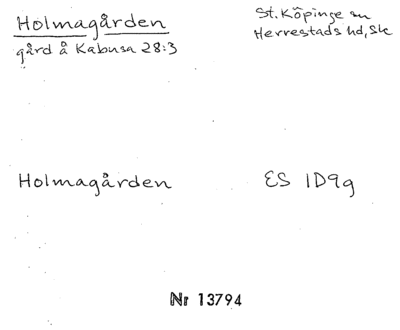 Holmagården
gård å Kabusa 28:3
St. Köpinge sn
Herrestads hd, Sk
Holmagården
ES 1D9g
Nr 13794